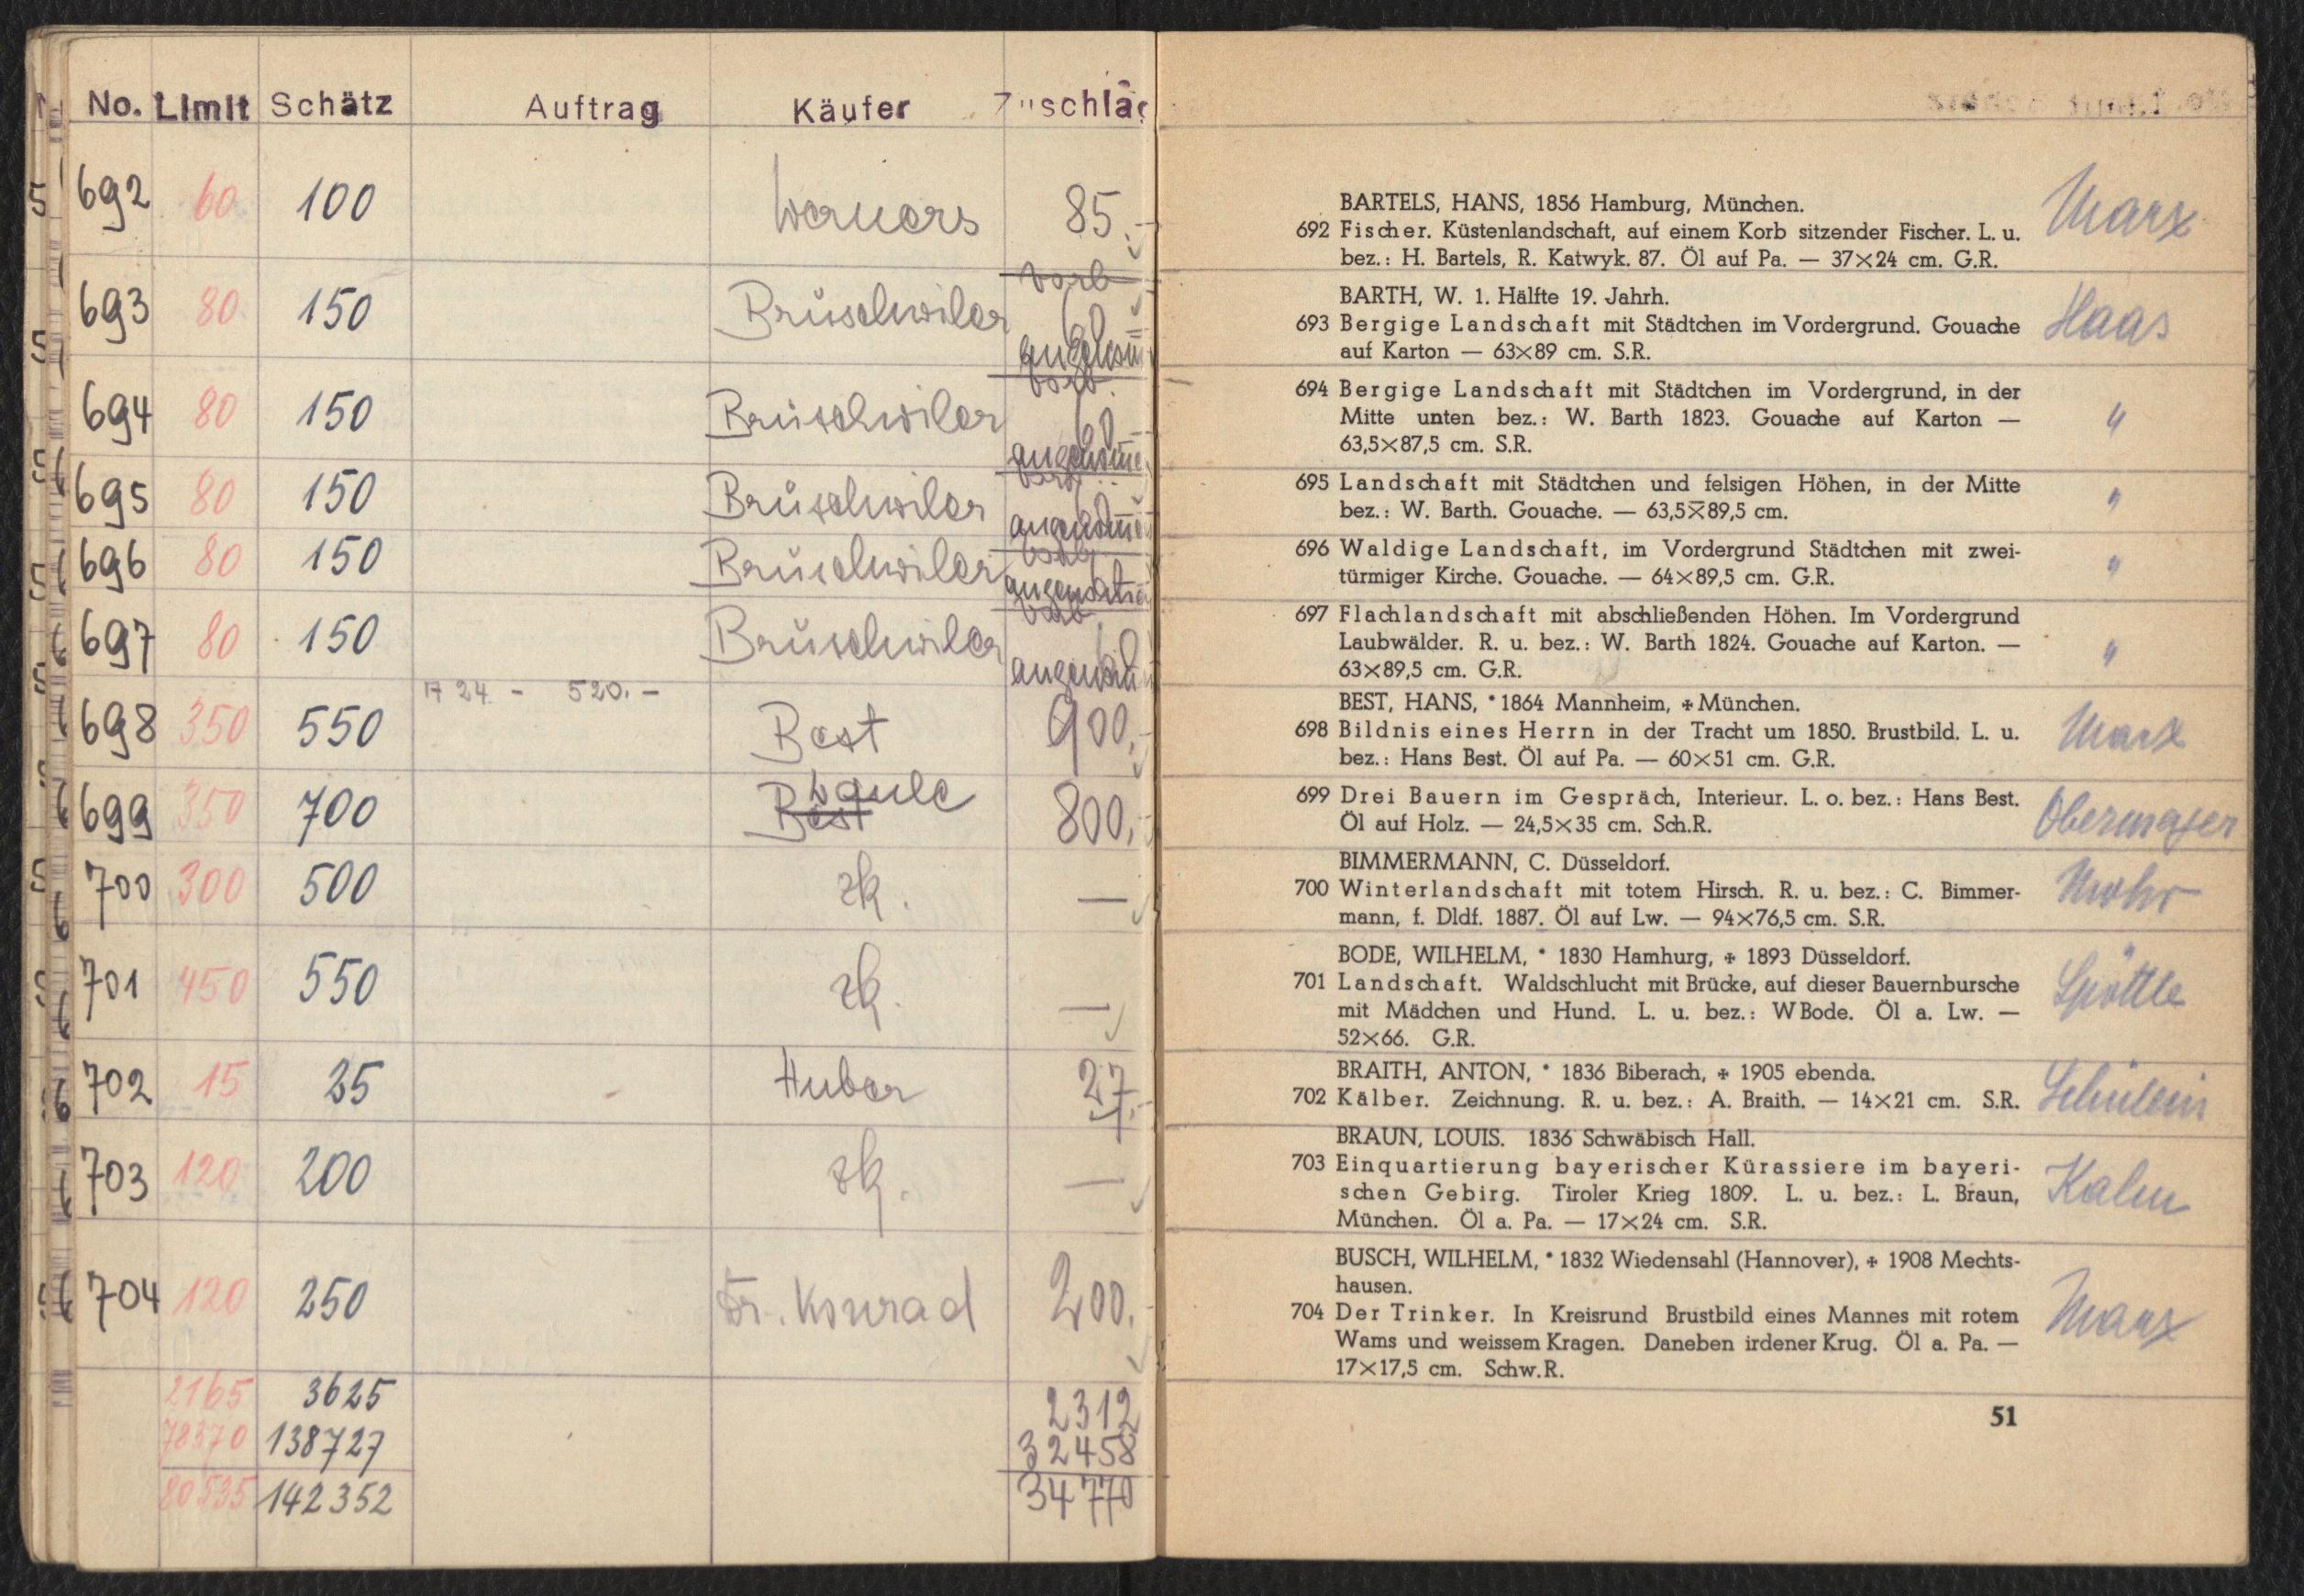 No. Limit Schätz Auftrag Käufer Zuschlag
692 60 100 Werners 85.-
693 80 150 Brüschwiler vorb 60
694 80 150 Brüschwiler vorb. 60
695 80 150 Brüschwiler
696 80 150 Brüschwiler
697 80 150 Brüschwiler 60
24 - 520.-
698 350 550 Best 900.-
699 350 700 Best 800.-
700 300 500 zk. —
701 450 550 zk. —
702 15 25 Huber 27.-
703 120 200 zk. —
704 120 250 Dr. Konrad 200.-
2165 3625 2312
78370 138727 32458
80535 142352 34770
BARTELS, HANS, 1856 Hamburg, München.
692 Fischer. Küstenlandschaft, auf einem Korb sitzender Fischer. L. u. Marx
bez.: H. Bartels, R. Katwyk. 87. Öl auf Pa. — 37×24 cm. G.R.
BARTH, W. 1. Hälfte 19. Jahrh.
693 Bergige Landschaft mit Städtchen im Vordergrund. Gouache Haas
auf Karton — 63×89 cm. S.R.
694 Bergige Landschaft mit Städtchen im Vordergrund, in der
Mitte unten bez.: W. Barth 1823. Gouache auf Karton — "
63,5×87,5 cm. S.R.
695 Landschaft mit Städtchen und felsigen Höhen, in der Mitte "
bez.: W. Barth. Gouache. — 63,5×89,5 cm.
696 Waldige Landschaft, im Vordergrund Städtchen mit zwei-
türmiger Kirche. Gouache. — 64×89,5 cm. G.R. "
697 Flachlandschaft mit abschließenden Höhen. Im Vordergrund
Laubwälder. R. u. bez.: W. Barth 1824. Gouache auf Karton. — "
63×89,5 cm. G.R.
BEST, HANS, *1864 Mannheim, ✠ München.
698 Bildnis eines Herrn in der Tracht um 1850. Brustbild. L. u. Marx
bez.: Hans Best. Öl auf Pa. — 60×51 cm. G.R.
699 Drei Bauern im Gespräch, Interieur. L. o. bez.: Hans Best. Obermayer
Öl auf Holz. — 24,5×35 cm. Sch.R.
BIMMERMANN, C. Düsseldorf.
700 Winterlandschaft mit totem Hirsch. R. u. bez.: C. Bimmer-
mann, f. Dldf. 1887. Öl auf Lw. — 94×76,5 cm. S.R.
BODE, WILHELM, * 1830 Hamhurg, ✠ 1893 Düsseldorf.
701 Landschaft. Waldschlucht mit Brücke, auf dieser Bauernbursche Spöttle
mit Mädchen und Hund. L. u. bez.: WBode. Öl a. Lw. —
52×66. G.R.
BRAITH, ANTON, * 1836 Biberach, ✠ 1905 ebenda.
702 Kälber. Zeichnung. R. u. bez.: A. Braith. — 14×21 cm. S.R. Schülein
BRAUN, LOUIS. 1836 Schwäbisch Hall.
703 Einquartierung bayerischer Kürassiere im bayeri-
schen Gebirg. Tiroler Krieg 1809. L. u. bez.: L. Braun, Kahn
München. Öl a. Pa. — 17×24 cm. S.R.
BUSCH, WILHELM, *1832 Wiedensahl (Hannover), ✠ 1908 Mechts-
hausen.
704 Der Trinker. In Kreisrund Brustbild eines Mannes mit rotem Marx
Wams und weissem Kragen. Daneben irdener Krug. Öl a. Pa. —
17×17,5 cm. Schw.R.
51